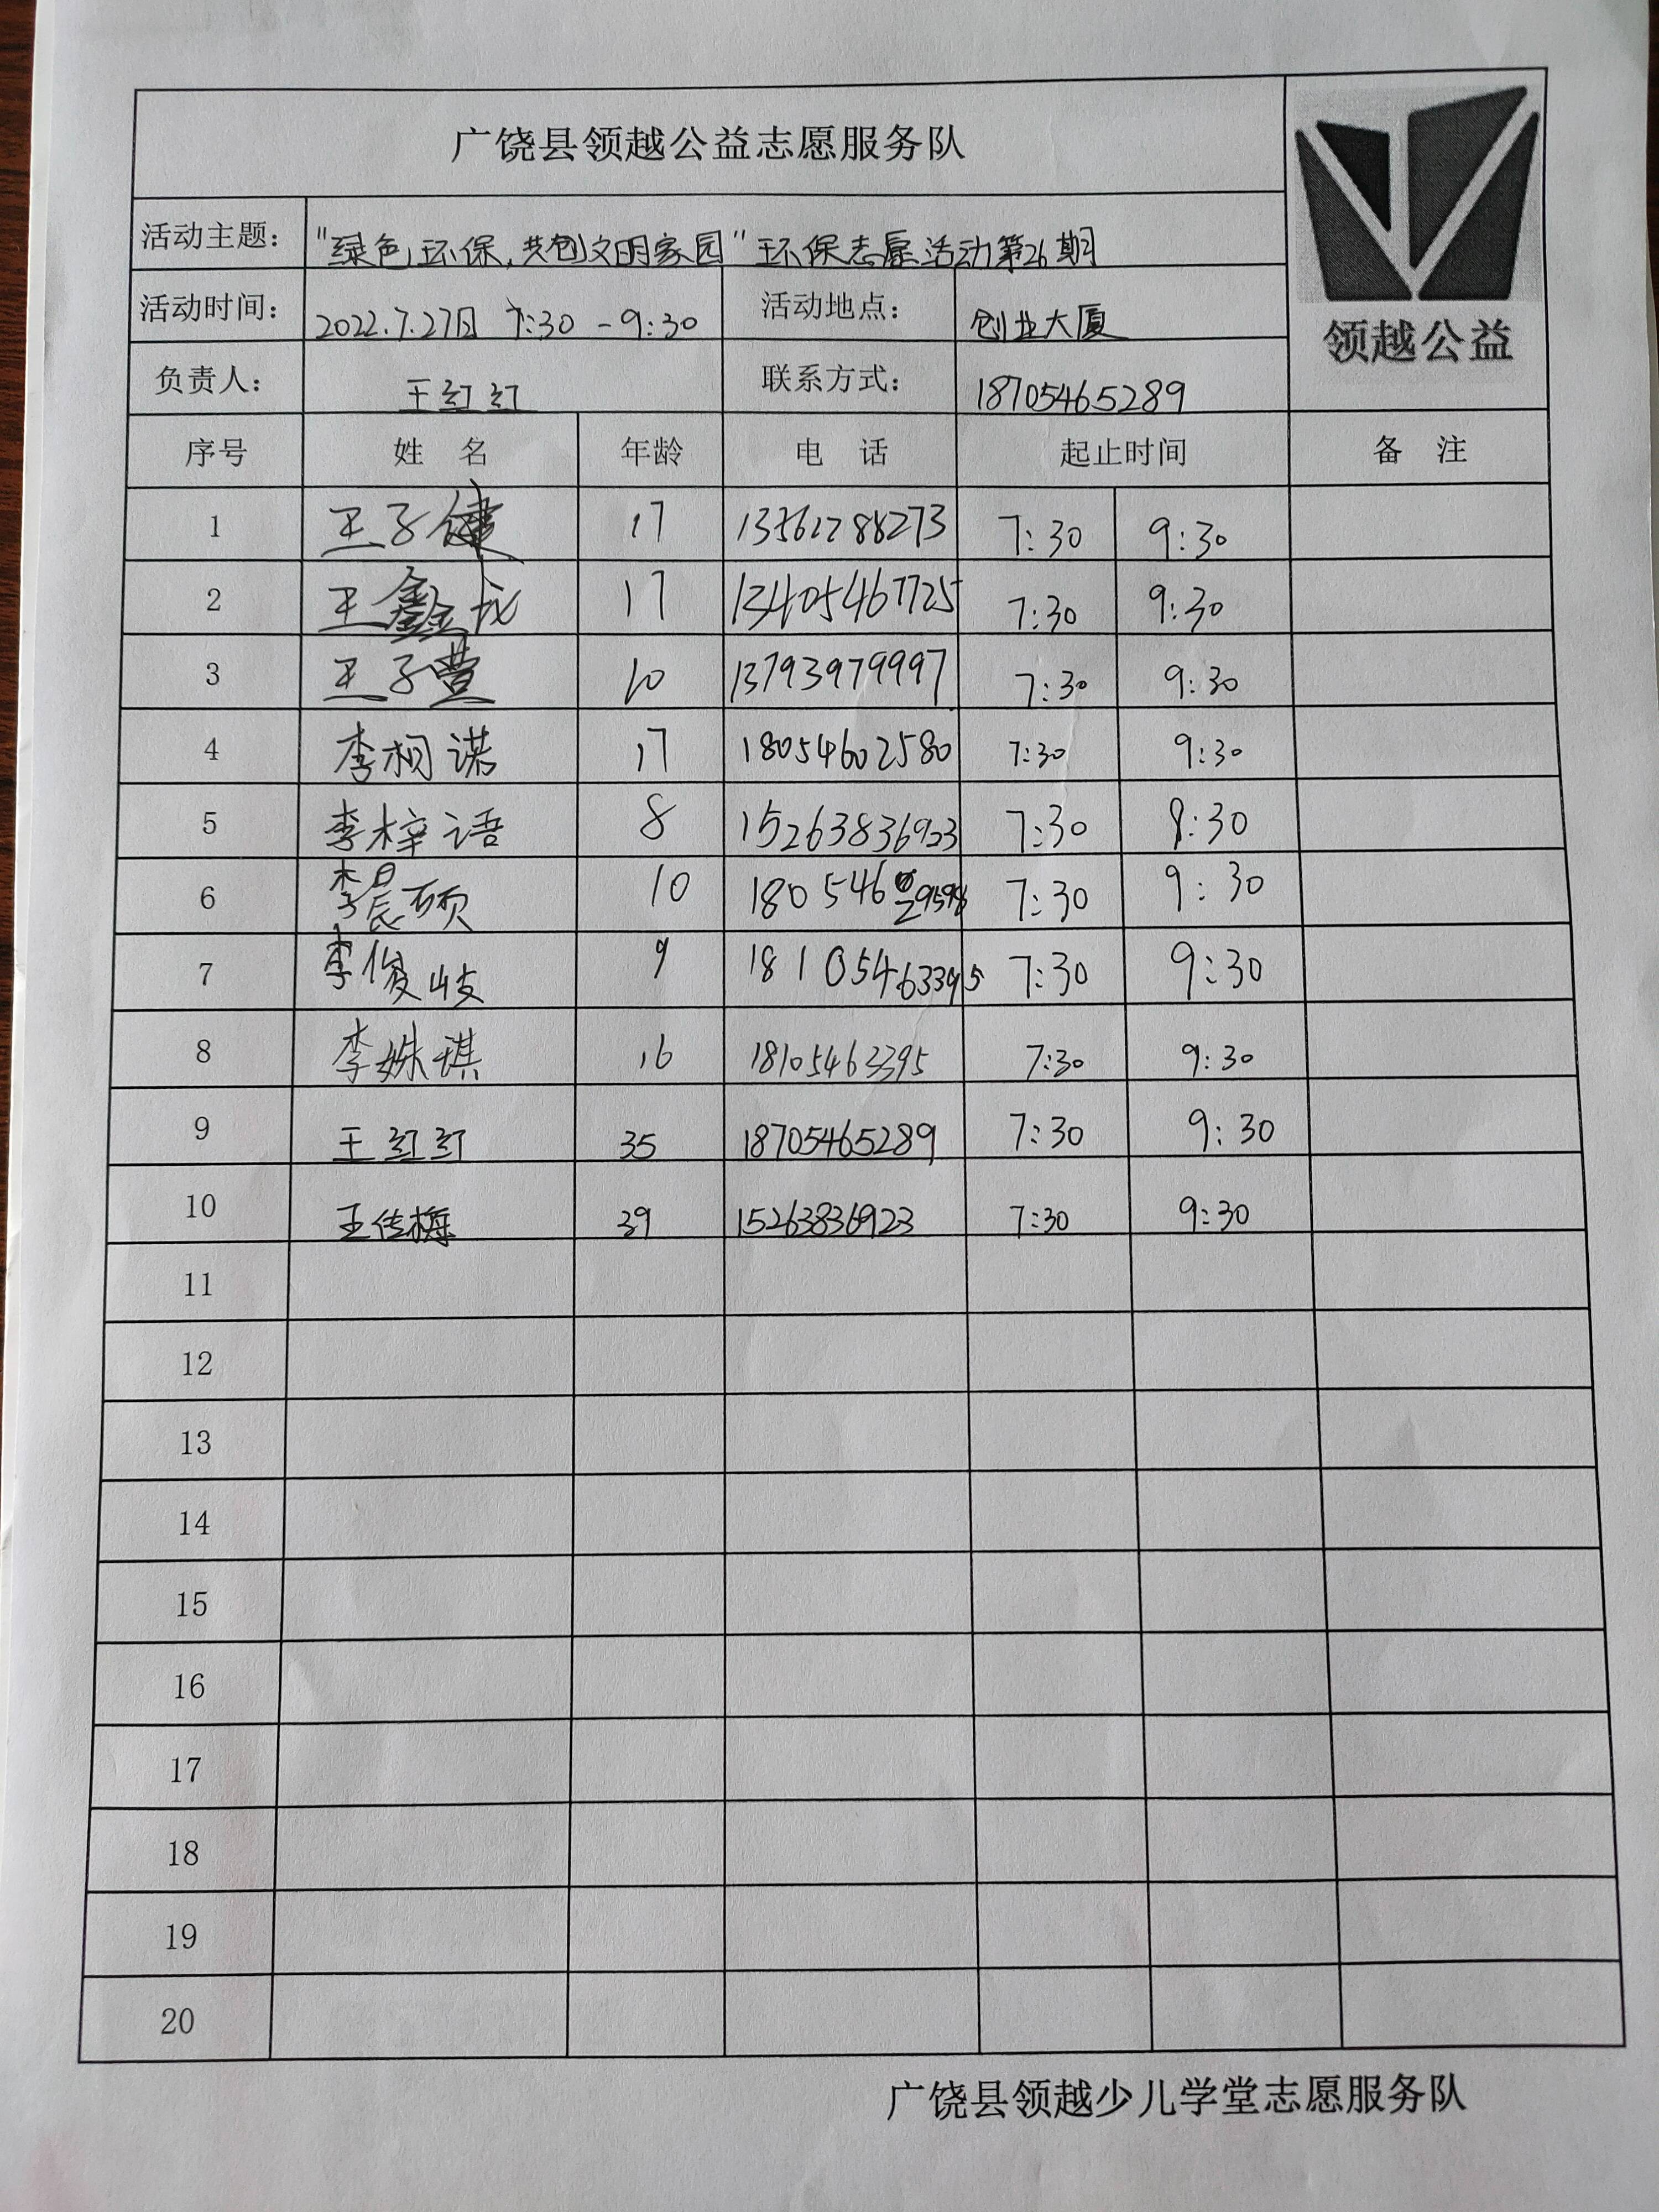 广饶县领越公益志愿服务队
活动主题： "绿色环保,共创文明家园"环保志愿活动第26期
领越公益
活动时间： 2022.7.27日 7:30 -9:30 活动地点： 创业大厦
负责人： 王红红 联系方式： 18705465289
序号 姓 名 年龄 电 话 起止时间 备 注
1 王子健 17 7:30 9:30
2 王鑫龙 17 13405467725 7:30 9:30
3 王子萱 10 13793979997 7:30 9:30
4 李相诺 17 18054602580 7:30 9:30
5 李梓语 8 15263836923 7:30 8:30
6 李晨硕 10 7:30 9:30
7 李俊岐 9 18105463395 7:30 9:30
8 李姝琪 16 18105463395 7:30 9:30
9 王红红 35 18705465289 7:30 9:30
10 王传梅 39 15263836923 7:30 9:30
11
12
13
14
15
16
17
18
19
20
广饶县领越少儿学堂志愿服务队